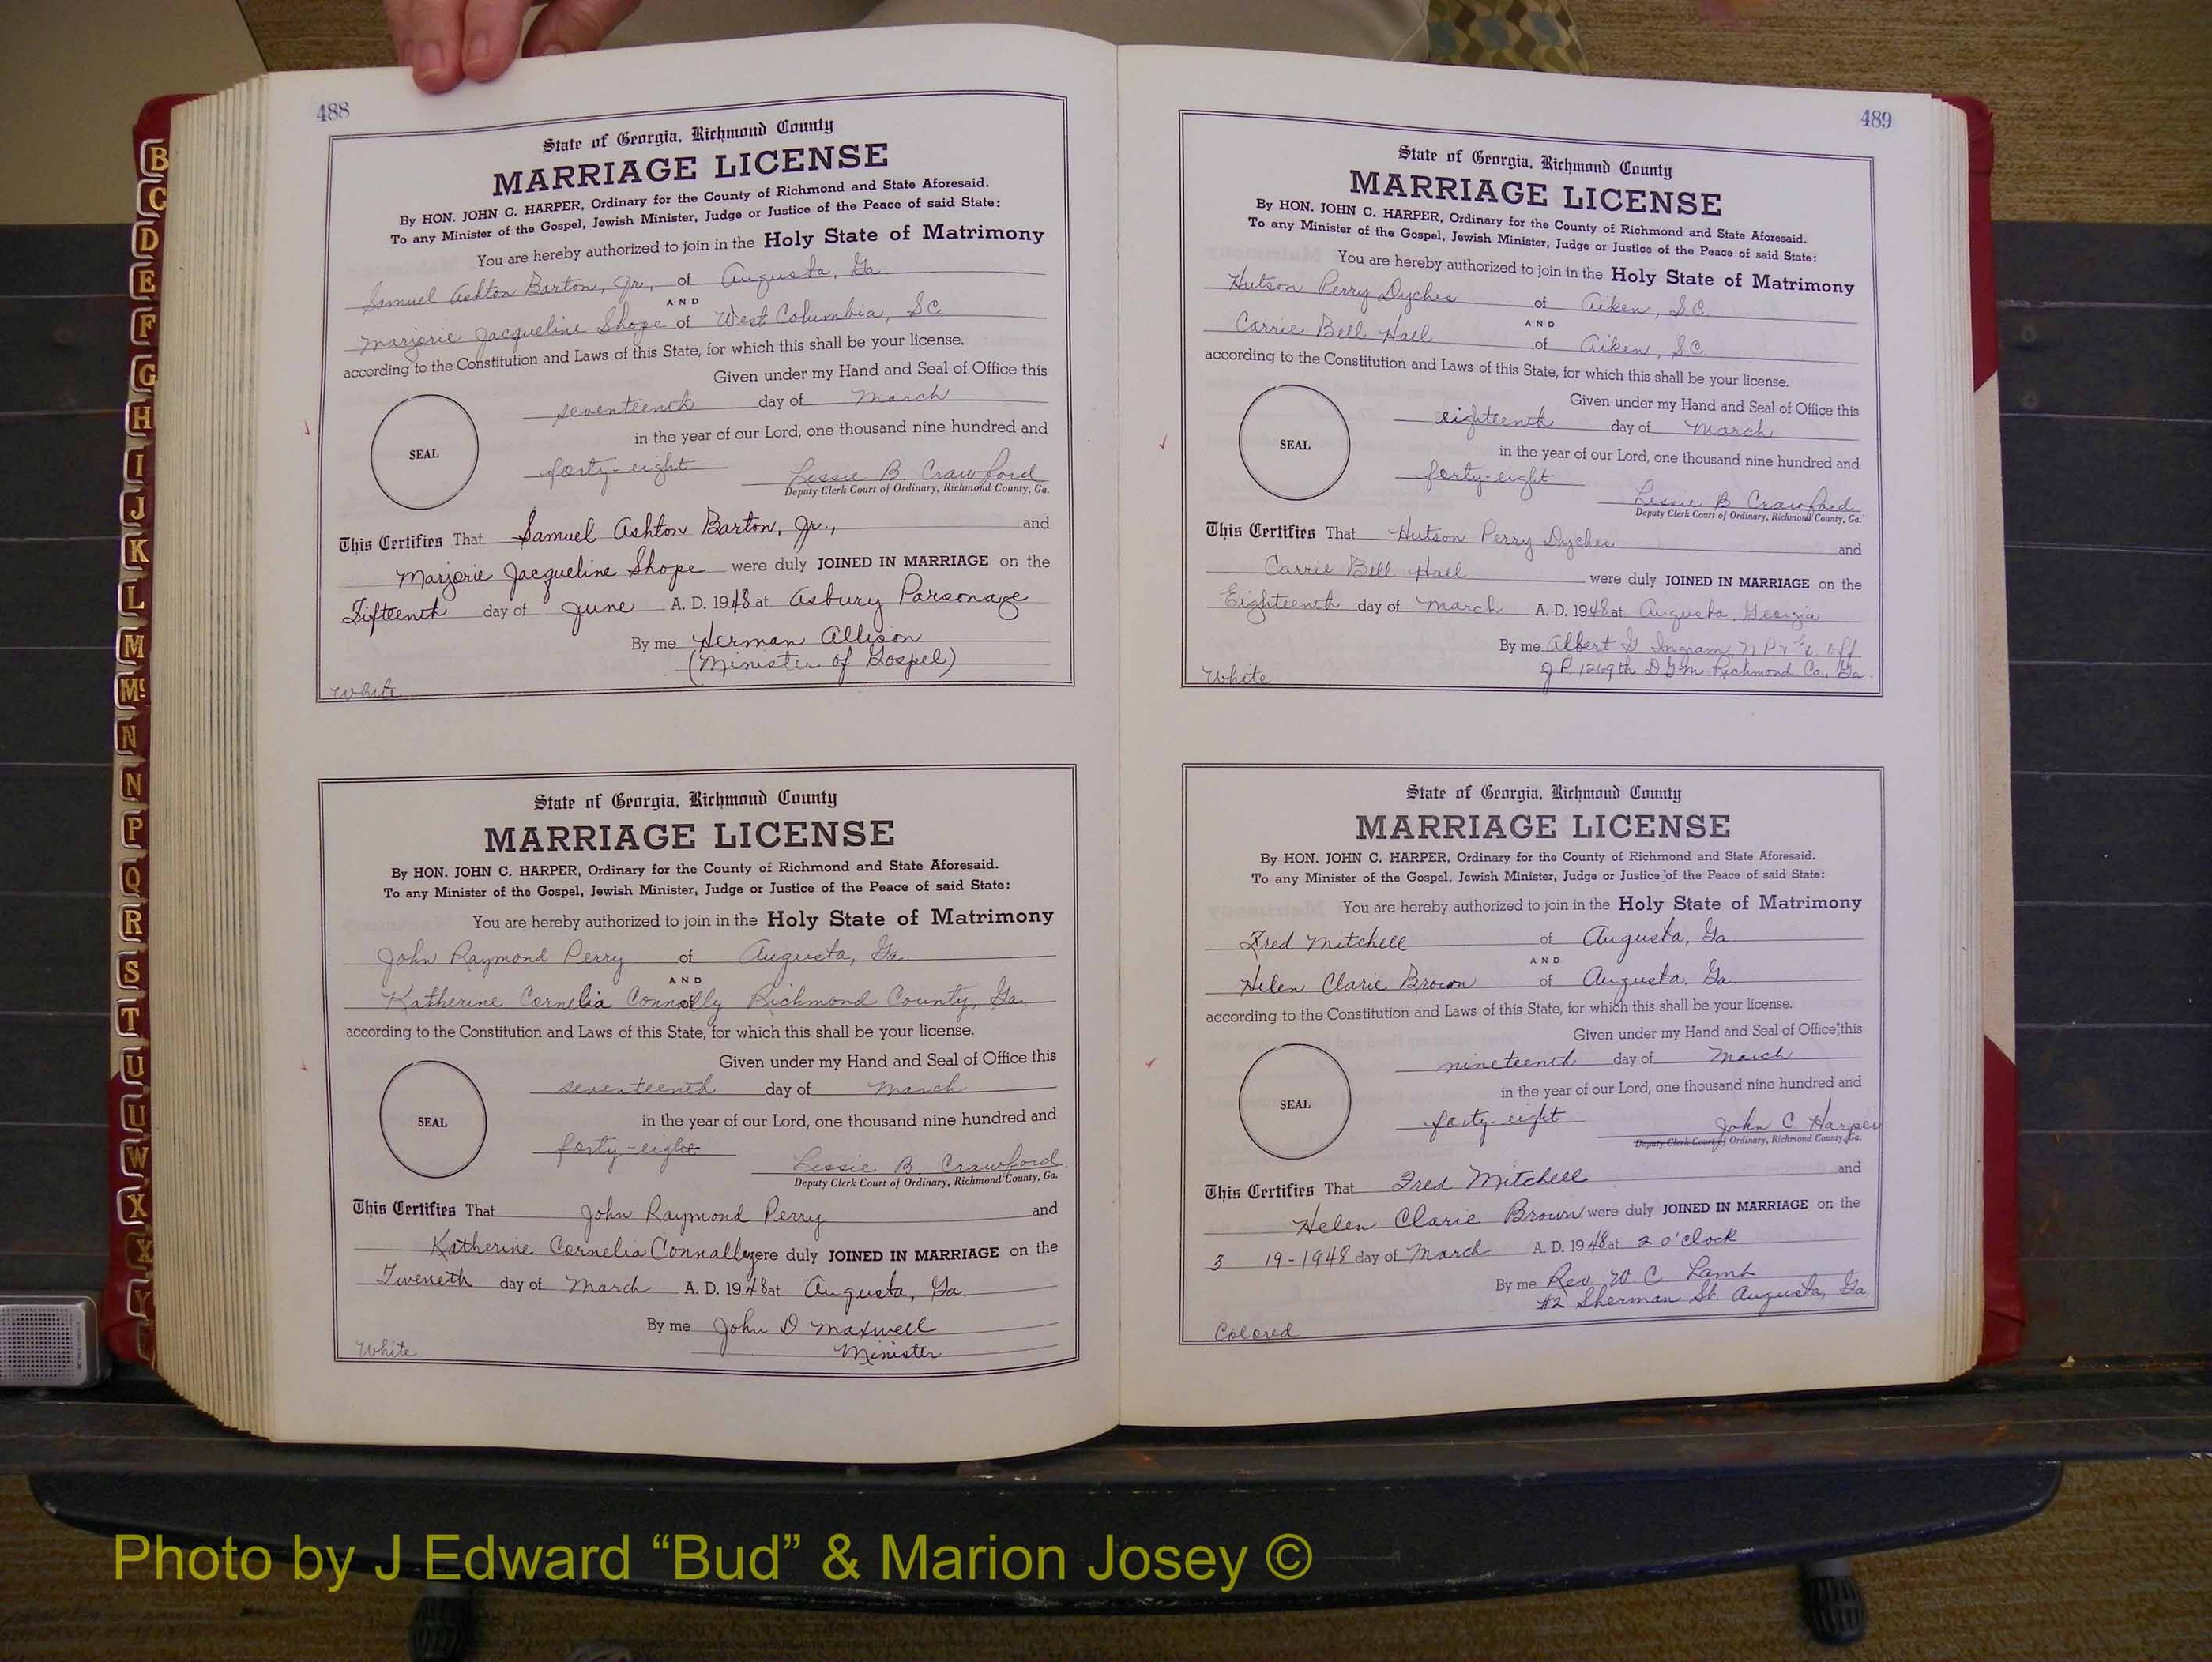 488
State of Georgia, Richmond County
MARRIAGE LICENSE
By HON. JOHN C. HARPER, Ordinary for the County of Richmond and State Aforesaid.
To any Minister of the Gospel, Jewish Minister, Judge or Justice of the Peace of said State:
You are hereby authorized to join in the Holy State of Matrimony
Samuel Ashton Barton, Jr., of Augusta, Ga.
AND
Marjorie Jacqueline Shope of West Columbia, S.C.
according to the Constitution and Laws of this State, for which this shall be your license.
Given under my Hand and Seal of Office this
seventeenth day of March
in the year of our Lord, one thousand nine hundred and
SEAL
forty-eight Lessie B. Crawford
Deputy Clerk Court of Ordinary, Richmond County, Ga.
This Certifies That Samuel Ashton Barton, Jr., and
Marjorie Jacqueline Shope were duly JOINED IN MARRIAGE on the
Fifteenth day of June A. D. 1948 at Asbury Parsonage
By me Herman Allison
(Minister of Gospel)
White
State of Georgia, Richmond County
MARRIAGE LICENSE
By HON. JOHN C. HARPER, Ordinary for the County of Richmond and State Aforesaid.
To any Minister of the Gospel, Jewish Minister, Judge or Justice of the Peace of said State:
You are hereby authorized to join in the Holy State of Matrimony
John Raymond Perry of Augusta, Ga.
AND
Katherine Cornelia Connolly of Richmond County, Ga.
according to the Constitution and Laws of this State, for which this shall be your license.
Given under my Hand and Seal of Office this
seventeenth day of March
in the year of our Lord, one thousand nine hundred and
SEAL
forty-eight Lessie B. Crawford
Deputy Clerk Court of Ordinary, Richmond County, Ga.
This Certifies That John Raymond Perry and
Katherine Cornelia Connally were duly JOINED IN MARRIAGE on the
Tweneth day of March A. D. 1948 at Augusta, Ga.
By me John D. Maxwell
Minister
White
489
State of Georgia, Richmond County
MARRIAGE LICENSE
By HON. JOHN C. HARPER, Ordinary for the County of Richmond and State Aforesaid.
To any Minister of the Gospel, Jewish Minister, Judge or Justice of the Peace of said State:
You are hereby authorized to join in the Holy State of Matrimony
Hutson Perry Dyches of Aiken, S.C.
AND
Carrie Bell Hall of Aiken, S.C.
according to the Constitution and Laws of this State, for which this shall be your license.
Given under my Hand and Seal of Office this
eighteenth day of March
in the year of our Lord, one thousand nine hundred and
SEAL
forty-eight Lessie B. Crawford
Deputy Clerk Court of Ordinary, Richmond County, Ga.
This Certifies That Hutson Perry Dyches and
Carrie Bell Hall were duly JOINED IN MARRIAGE on the
Eighteenth day of March A. D. 1948 at Augusta, Georgia
By me Albert G Ingram, N P & Ex. Off
J.P. 1269th D G M Richmond Co., Ga.
White
State of Georgia, Richmond County
MARRIAGE LICENSE
By HON. JOHN C. HARPER, Ordinary for the County of Richmond and State Aforesaid.
To any Minister of the Gospel, Jewish Minister, Judge or Justice of the Peace of said State:
You are hereby authorized to join in the Holy State of Matrimony
Fred Mitchell of Augusta, Ga.
AND
Helen Clarie Brown of Augusta, Ga.
according to the Constitution and Laws of this State, for which this shall be your license.
Given under my Hand and Seal of Office this
nineteenth day of March
in the year of our Lord, one thousand nine hundred and
SEAL
forty-eight John C. Harper
Deputy Clerk Court of Ordinary, Richmond County, Ga.
This Certifies That Fred Mitchell and
Helen Clarie Brown were duly JOINED IN MARRIAGE on the
3 19-1948 day of March A. D. 1948 at 2 o'clock
By me Rev. W. C. Lamb
#2 Sherman St. Augusta, Ga.
Colored
B
C
D
E
F
G
H
I
J
K
L
M
Mc
N
N
P
Q
R
S
T
U
U
W
X
X
Y
Photo by J Edward “Bud” & Marion Josey ©